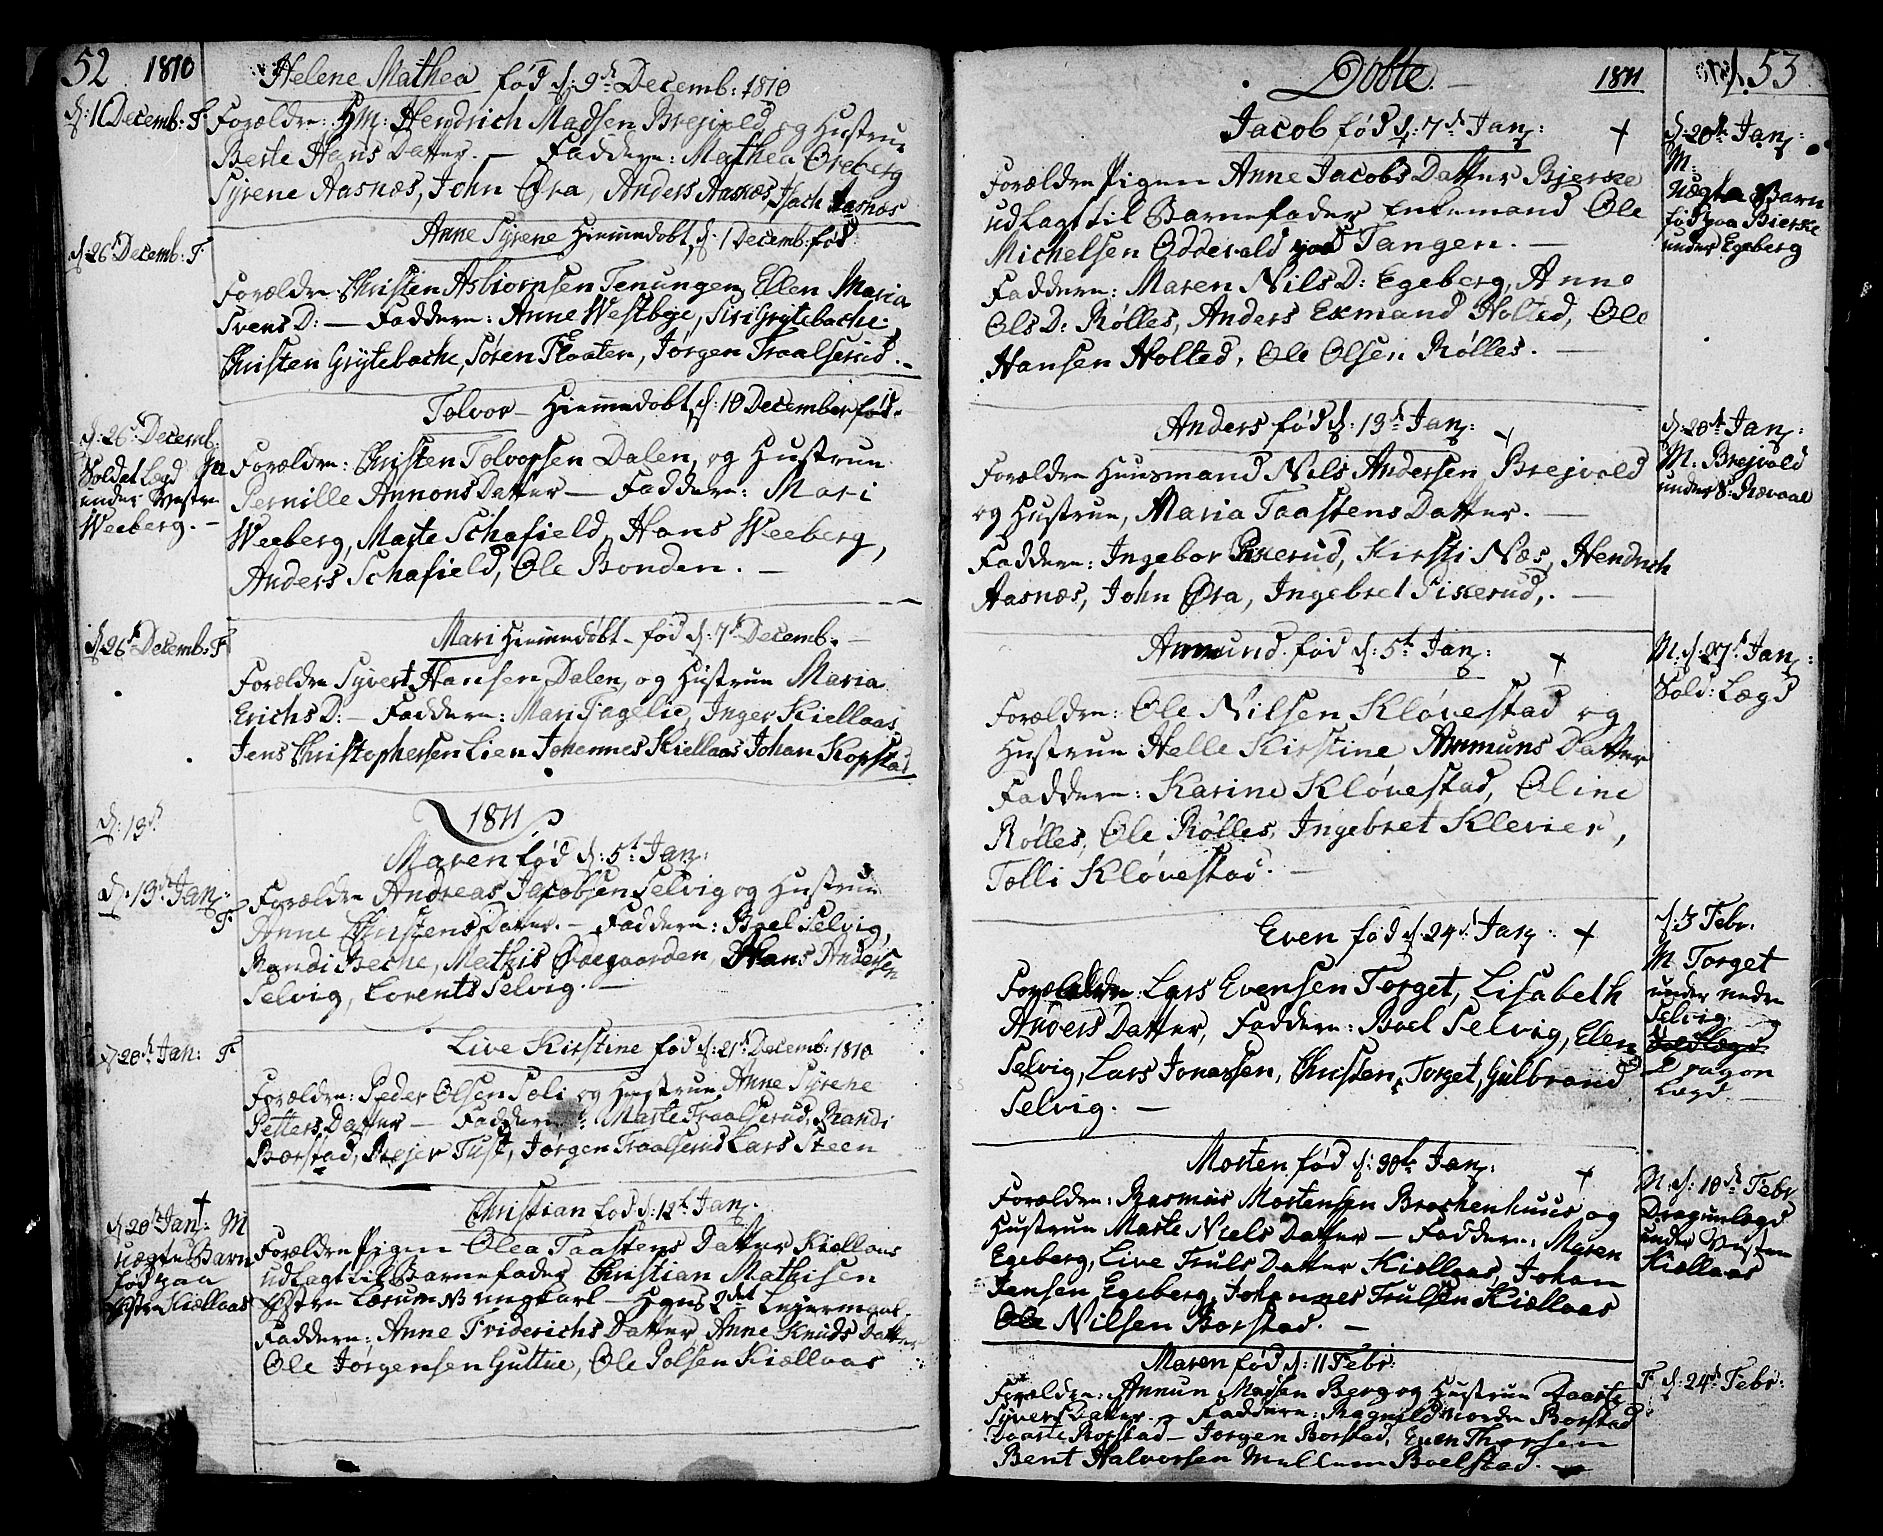 52 1810
Helene Mathea fød d: 9de Decemb: 1810
d: 11 Decemb: F
Forældre: HM: Hendrich Madsen Brejvold og Hustrue
Berte Hans Datter. — Faddere: Mathea Oreberg
Syrene Aasnæs, John Øra, Anders Aasnæs, Isach Aasnæs
d 26 Decemb: F
Anne Syrene Hiemmedøbt, d: 1 Decemb: fød
Forældre: Christen Asbiørnsen Tenungen, Ellen Maria
Svens D: — Faddere: Anne Westbye, Siri Grytebache,
Christen Grytebache, Søren Floaten, Jørgen Traalserud. —
Tolvor — Hiemmedøbt, d: 10 December fød.
d: 26 Decemb:
Soldat Lægd
under Vestre
Weeberg. —
Forældre: Christen Tolvorsen Dalen, og Hustrue
Pernille Annons Datter — Faddere: Mari
Weeberg, Marte Schafield, Hans Weeberg,
Anders Schafield, Ole Bonden. —
d 26de Decemb: F
Mari Hiemmedøbt — fød d: 7de Decemb. —
Forældre Syvert Hansen Dalen, og Hustrue Maria
Erichs D: — Faddere: Mari Fagelie, Inger Kiellaas
Jens Christophersen Lien Johannes Kiellaas Johan Kopstad
1811
d: 13de
Maren fød d: 5te Jan:
d. 13de Jan: F
Forældre Andreas Jacobsen Selvig og Hustrue
Anne Christens Datter. — Faddere: Boel Selvig,
Randi Beche, Mathis Ødegaarden, Hans Andersen
Selvig, Lorents Selvig. —
d 20de Jan: F
Live Kirstine fød d: 21de Decemb: 1810
Forældre: Peder Olsen Soli og Hustrue Anne Syrene
Petters Datter — Faddere: Marte Traalserud, Randi
Borstad, Rejer Tust, Jørgen Traalserud Lars Steen
Christian fød d: 12te Jan:
d 20de Jan: M
uægte Barn
fød paa
Østre Kiellaas
Forældre Pigen Olea Taastens Datter Kiellaas
udlagt til Barnefader Christian Mathisen
Østre Lærum NB ungkarl — Hans 2det Leiermaal.
Faddere: Anne Friderichs Datter, Anne Knuds Datter
Ole Jørgensen Guttue, Ole Polsen Kiællaas
Døbte. — 1811 53
Jacob fød d: 7de Jan: +
d: 20de Jan:
M:
uægte Barn
fød paa Bierke
under Egeberg
Forældre Pigen Anne Jacobs Datter Bjerke
udlagt til Barnefader Enkemand Ole
Michelsen Odderald paa Tangen. —
Faddere: Maren Nils D: Egeberg, Anne
Ols D: Rølles, Anders Exmand Holted, Ole
Hansen Holted, Ole Olsen Rølles. —
Anders fød d: 13de Jan: +
d: 20de Jan:
M. Brejvold
under S: Revaal
Forældre Huusmand Nils Andersen Brejvold
og Hustrue, Maria Taastens Datter. —
Faddere: Ingebor Sixerud, Kirsti Næs, Hendrich
Aasnæs, John Øra, Ingebret Sixerud,. —
Anmund. fød d: 5te Jan: +
M. d: 27de Jan:
Sold: Lægd
Forældre: Ole Nilsen Kløvestad og
Hustrue: Helle Kirstine Anmuns Datter
Faddere: Karine Kløvestad, Oline
Rølles, Ole Rølles, Ingebret Klevier,
Tolli Kløvestad. —
Even fød d. 24de Jan: +
d: 3 Febr:
M Torget
under nedre
Selvig.
Soldlægd
Dragon
Lægd. —
Forældre: Lars Evensen Torget, Lisabeth
Anders Datter, Faddere: Boel Selvig, Elen
Selvig, Lars Jonassen, Christen Torget, Gulbrand
Selvig. —
Morten fød d: 30te Jan: +
M. d: 10de Febr
Dragonlægd
under Vestre
Kiellaas
Forældre: Rasmus Mortensen Brochenhuus og
Hustrue Marte Niels Datter — Faddere: Maren
Egeberg, Live Truls Datter Kiellaas, Johan
Jensen Egeberg, Johannes Trulsen Kiællaas
Ole Nilsen Borstad. —
Maren fød d: 11 Febr:
F d: 24de Febr:
Forældre: Annun Madsen Berg og Hustrue Daarte
Syvers Datter. — Faddere: Ragnild nordre Borstad
Daarte Borstad — Jørgen Borstad, Even Thorsen
Bent Halvorsen Mellum Boelstad. —